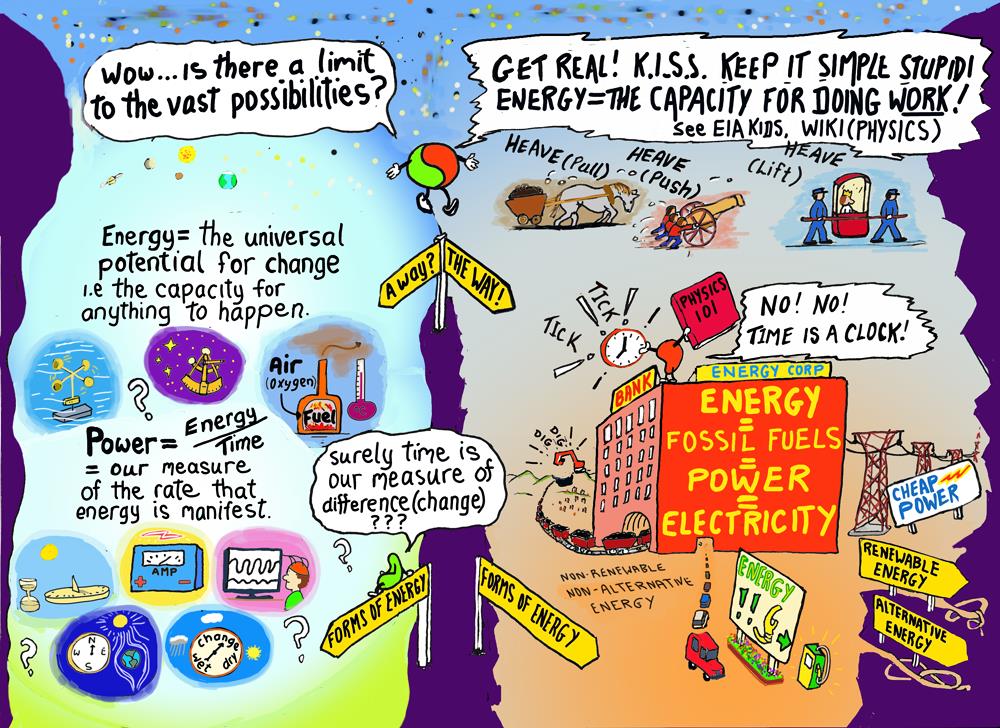 Wow...is there a limit
to the vast possibilities?
GET REAL! K.I.S.S. KEEP IT SIMPLE STUPID!
ENERGY=THE CAPACITY FOR DOING WORK!
See EIA KIDS, WIKI(PHYSICS)
HEAVE (Pull)
HEAVE
(Push)
HEAVE
(Lift)
Energy= the universal
potential for change
i.e the capacity for
anything to happen.
A way?
THE WAY!
TICK
TICK
PHYSICS
101
NO! NO!
TIME IS A CLOCK!
Air
(Oxygen)
Fuel
Power= Energy
Time
= our measure
of the rate that
energy is manifest.
surely time is
our measure of
difference(change)
???
BANK
ENERGY CORP
ENERGY
=
FOSSIL FUELS
=
POWER
=
ELECTRICITY
DIG
DIG
CHEAP
POWER
AMP
N
W E
S
change
wet dry
?
?
?
?
FORMS OF ENERGY
FORMS OF ENERGY
NON-RENEWABLE
NON-ALTERNATIVE
ENERGY
ENERGY
!!
RENEWABLE
ENERGY
ALTERNATIVE
ENERGY